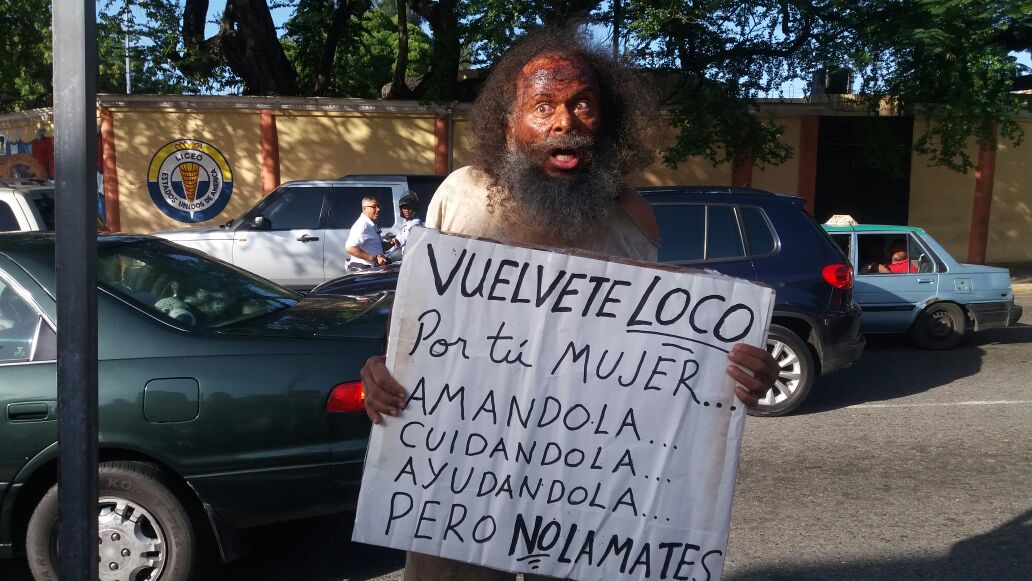 LICEO
ESTADOS UNIDOS DE AMERICA
VUELVETE LOCO
Por tú MUJER...
AMANDOLA...
CUIDANDOLA...
AYUDANDOLA...
PERO NO LA MATES